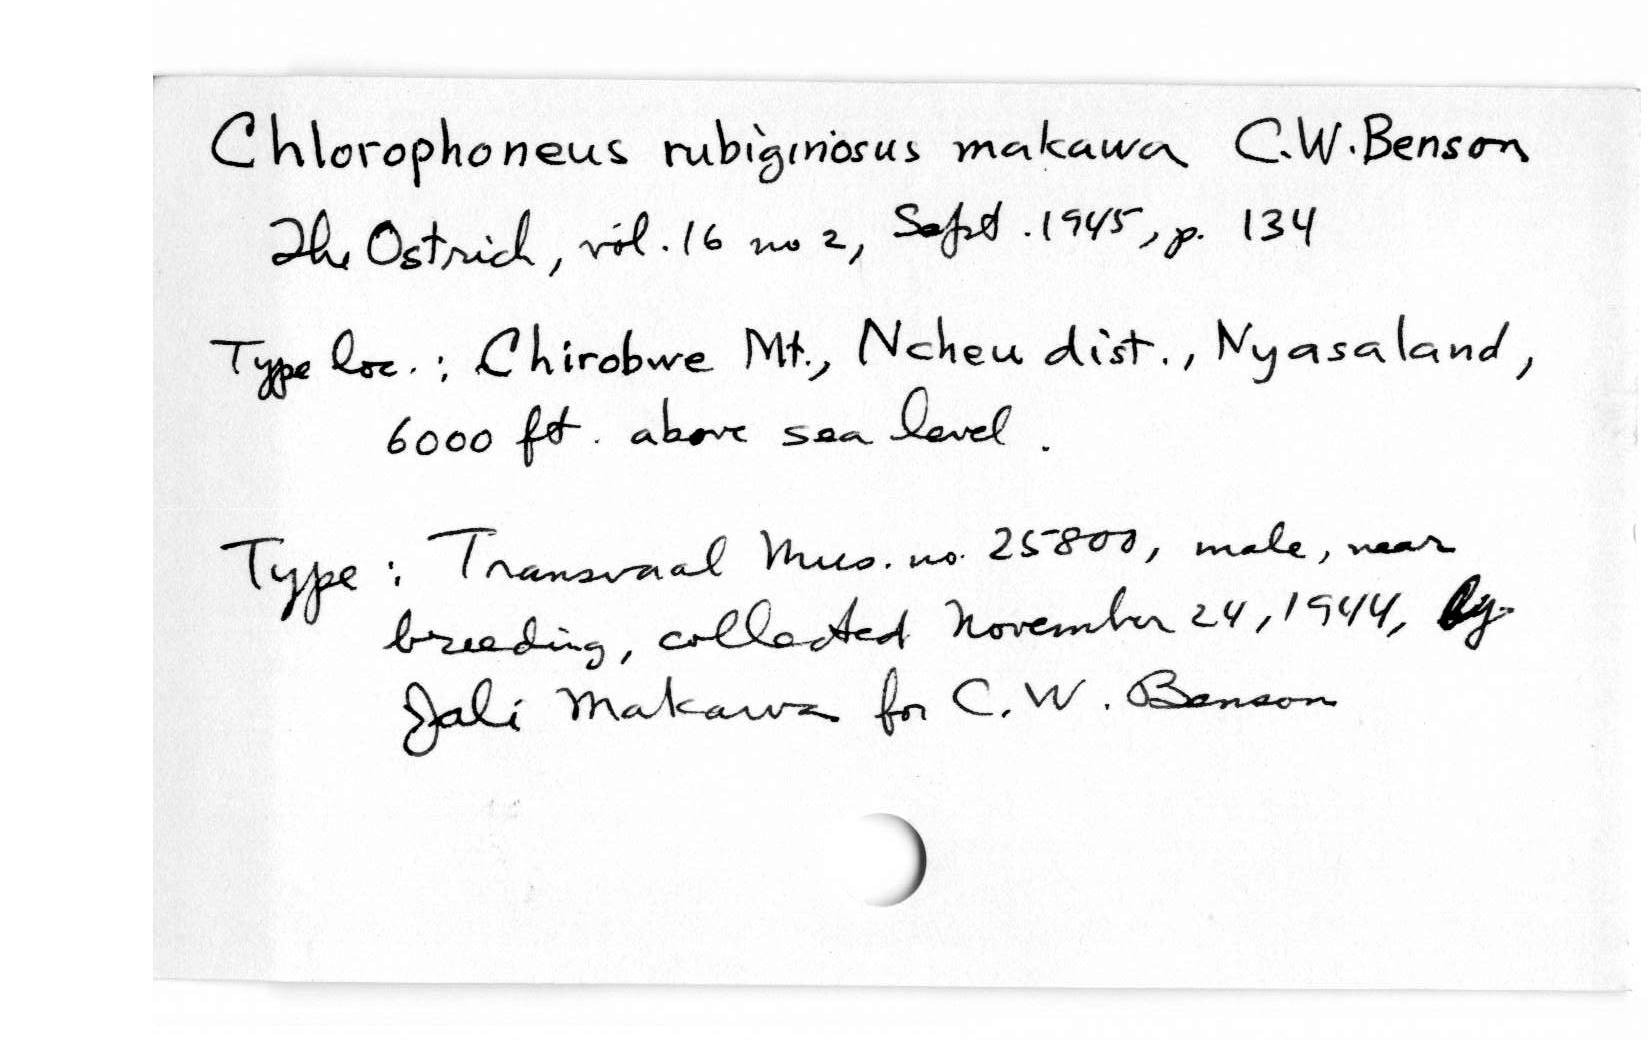 Chlorophoneus rubiginosus makawa C.W. Benson
The Ostrich, vol. 16 no 2, Sept. 1945, p. 134
Type loc.: Chirobwe Mt., Ncheu dist., Nyasaland,
6000 ft. above sea level.
Type: Transvaal Mus. no. 25800, male, near
breeding, collected November 24, 1944, by
Jali Makawa for C. W. Benson